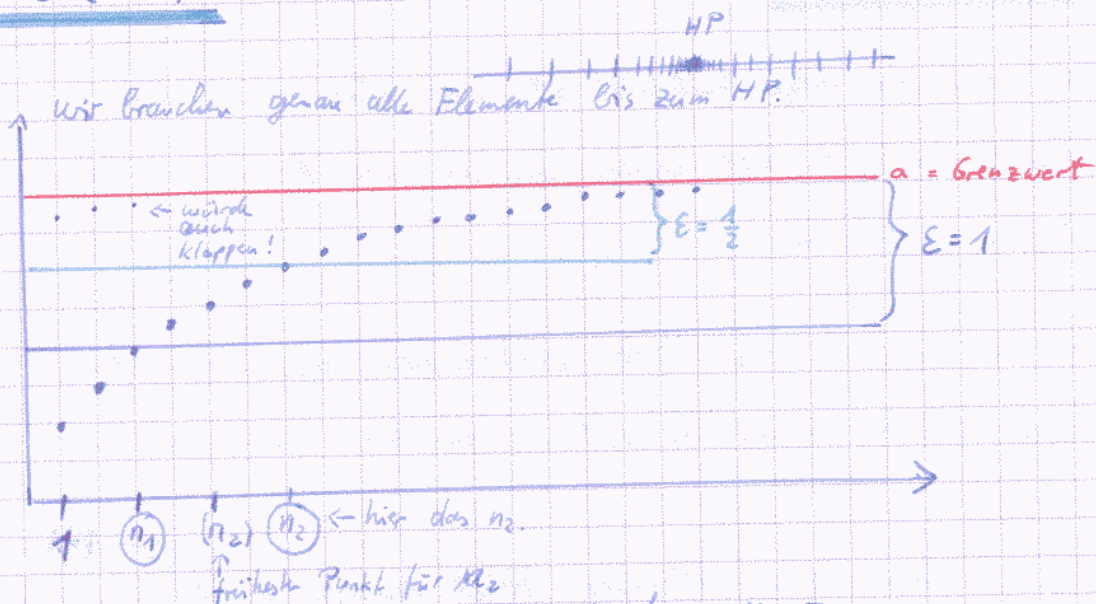 HP
wir brauchen genau alle Elemente bis zum HP.
a = Grenzwert
← würde
auch
klappen!
ε = 1/2
ε = 1
1 n₁ (n₂) n₂ ← hier das n₂.
↑
frühester Punkt für n₂